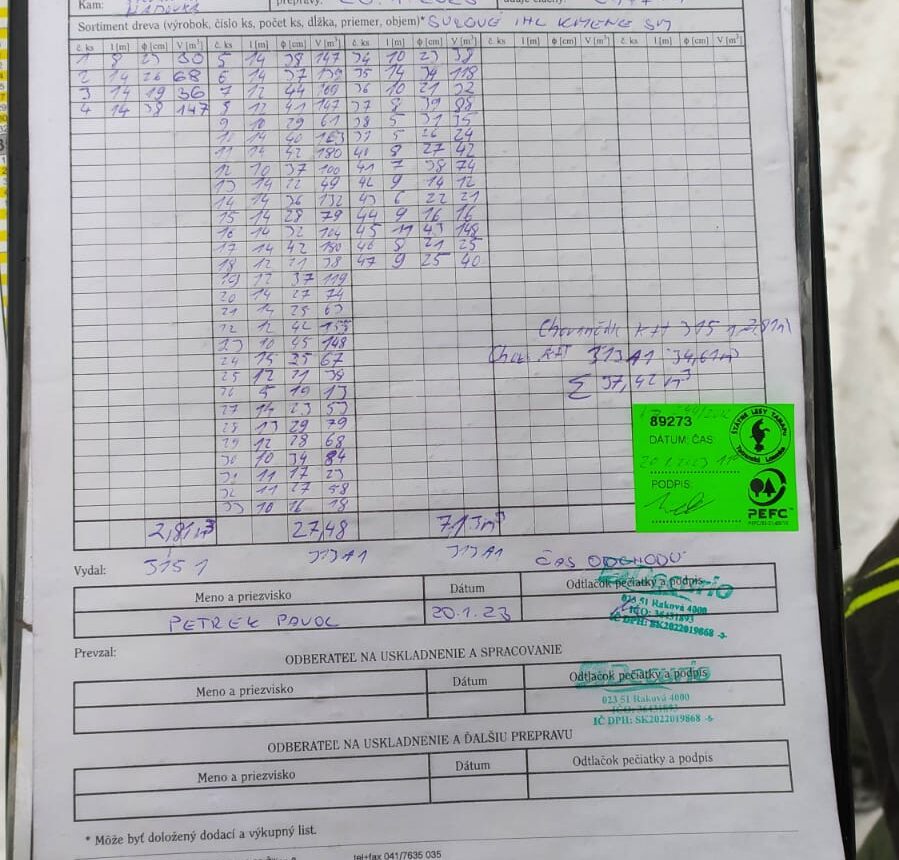 Kam: HLADOVKA prepravy: 20.1.2023
Sortiment dreva (výrobok, číslo ks, počet ks, dĺžka, priemer, objem)* SUROVÉ IHL KMENE SM
č. ks l [m] ϕ [cm] V [m³] č. ks l [m] ϕ [cm] V [m³] č. ks l [m] ϕ [cm] V [m³] č. ks l [m] ϕ [cm] V [m³] č. ks l [m] ϕ [cm] V [m³]
1 8 23 30 5 14 38 147 34 10 23 38
2 14 26 68 6 14 37 139 35 14 34 118
3 14 19 36 7 12 44 169 36 10 21 32
4 14 38 147 8 12 41 147 37 8 39 88
9 10 29 61 38 5 31 35
10 14 40 163 39 5 26 24
11 14 42 180 40 8 27 42
12 10 37 100 41 7 38 74
13 14 22 49 42 9 14 12
14 14 36 132 43 6 22 21
15 14 28 79 44 9 16 16
16 14 32 104 45 11 43 148
17 14 42 180 46 8 21 25
18 12 21 38 47 9 25 40
19 12 37 119
20 14 27 74
21 14 25 63
22 12 42 155
23 10 45 148
24 15 25 67
25 12 21 39
26 5 19 13
27 14 23 53
28 13 29 79
29 12 28 68
30 10 34 84
31 11 17 23
32 11 27 58
33 10 16 18
315 1 2,81m³
313A1 34,61m³
Σ 37,42 m³
89273
DÁTUM: ČAS
20.1.2023
PODPIS:
ŠTÁTNE LESY TANAPU
Tatranská Lomnica
PEFC
2,81m³ 27,48 7,13m³
315 1 313A1 313A1 ČAS ODCHODU
Vydal:
Meno a priezvisko Dátum Odtlačok pečiatky a podpis
PETREK PAVOL 20.1.23
023 51 Raková 4000
IČO: 36431893
IČ DPH: SK2022019868 -5-
Prevzal:
ODBERATEĽ NA USKLADNENIE A SPRACOVANIE
Meno a priezvisko Dátum Odtlačok pečiatky a podpis
023 51 Raková 4000
IČO: 36431893
IČ DPH: SK2022019868 -5-
ODBERATEĽ NA USKLADNENIE A ĎALŠIU PREPRAVU
Meno a priezvisko Dátum Odtlačok pečiatky a podpis
* Môže byť doložený dodací a výkupný list.
tel+fax 041/7635 035